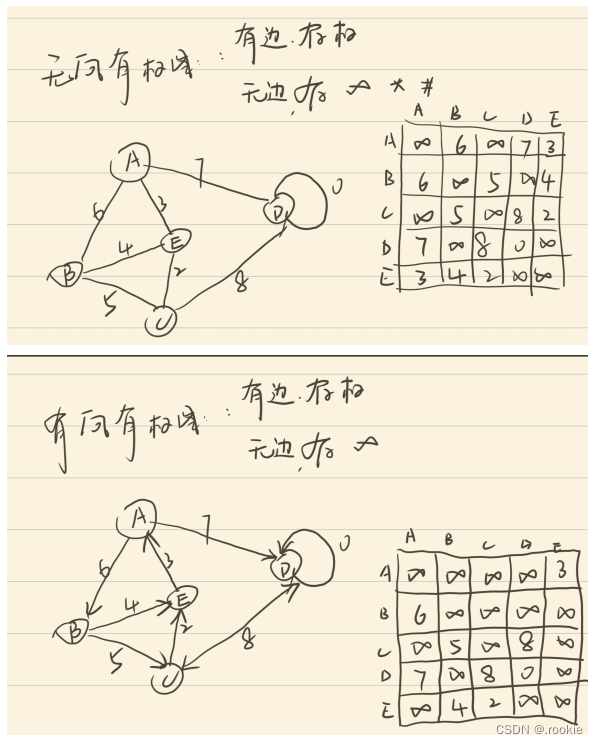 无向有权图：有边.存权
无边.存 ∞ * #
A B C D E
A ∞ 6 ∞ 7 3
B 6 ∞ 5 ∞ 4
C ∞ 5 ∞ 8 2
D 7 ∞ 8 0 ∞
E 3 4 2 ∞ ∞
A
7
0
6
3
D
4
E
B
2
5
8
C
有向有权图：有边.存权
无边.存 ∞
A B C D E
A ∞ ∞ ∞ ∞ 3
B 6 ∞ ∞ ∞ ∞
C ∞ 5 ∞ 8 ∞
D 7 ∞ 8 0 ∞
E ∞ 4 2 ∞ ∞
A
7
0
6
3
D
4
E
B
2
5
8
C
CSDN @.rookie